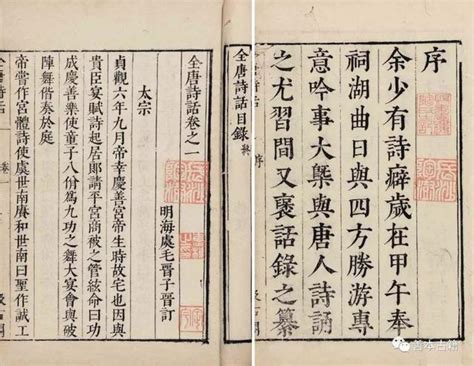 序
余少有詩癖歲在甲午奉
祠湖曲日與四方勝游專
意吟事大槩與唐人詩誦
之尤習間又裒話錄之纂
全唐詩話目錄
全唐詩話卷之一
明海虞毛晉子晉訂
太宗
貞觀六年九月帝幸慶善宮帝生時故宅也因與
貴臣宴賦詩起居郎請平宮商被之管絃命曰功
成慶善樂使童子八佾為九功之舞大宴會與破
陣舞偕奏於庭
帝嘗作宮體詩使虞世南賡和世南曰聖作誠工
善本古籍